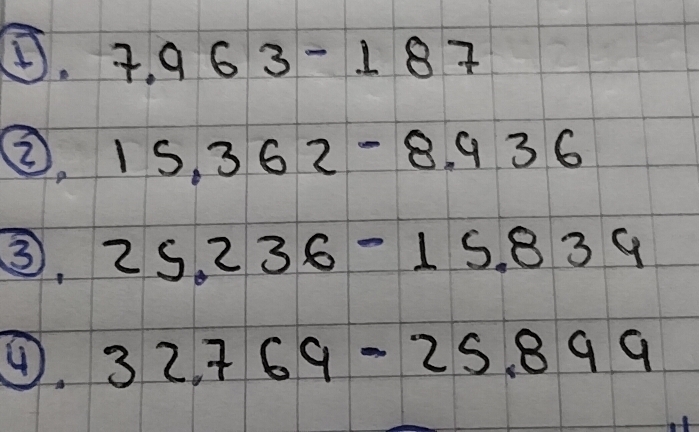 1. 7.963-187
2. 15.362-8.936
3. 25.236-15.839
4. 32.769-25.899